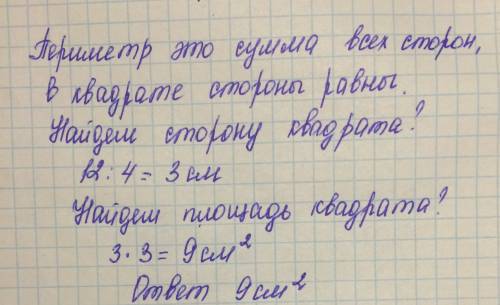 Периметр это сумма всех сторон,
в квадрате стороны равны.
Найдем сторону квадрата?
12:4=3см
Найдем площадь квадрата?
3·3=9см²
Ответ 9см²